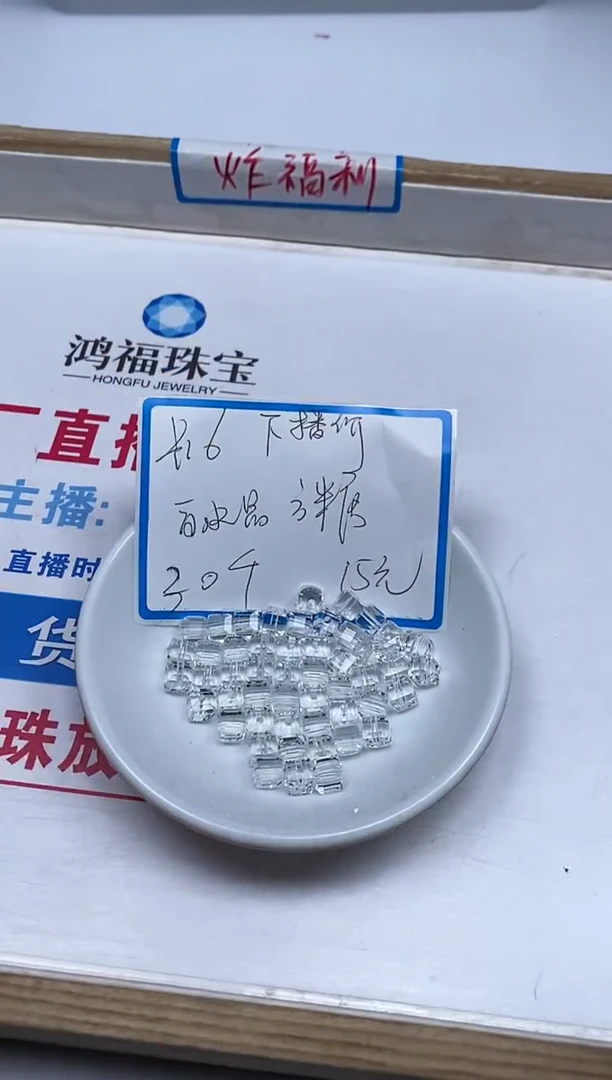 炸福利
鸿福珠宝
HONGFU JEWELRY
厂直播
主播:
直播时
货
珠放
长6 下播价
白水晶 方糖
304 15元